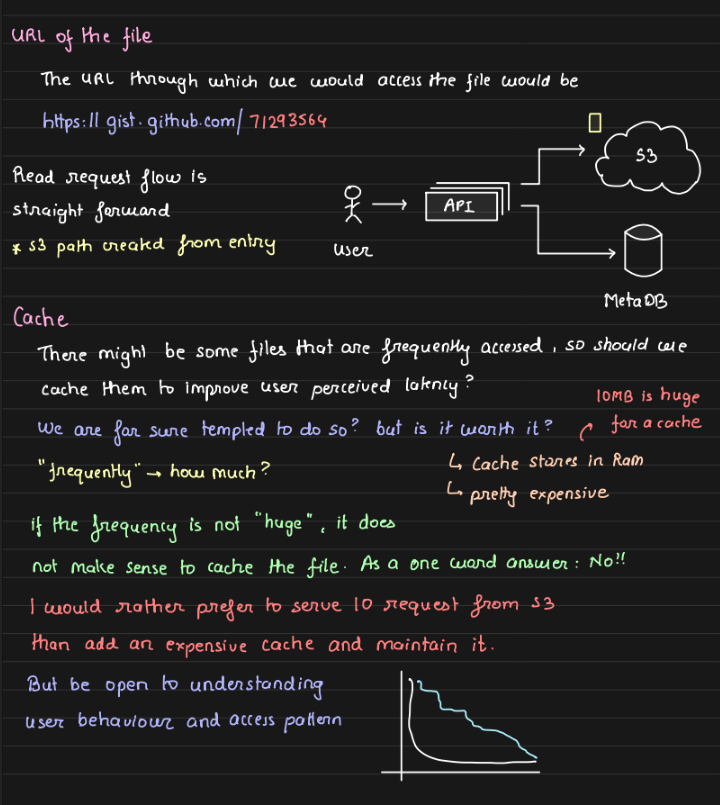 URL of the file
The URL through which we would access the file would be
https://gist.github.com/71293564
Read request flow is
straight forward
* S3 path created from entry
user
API
S3
MetaDB
Cache
There might be some files that are frequently accessed, so should we
cache them to improve user perceived latency?
10MB is huge
for a cache
We are for sure tempted to do so? but is it worth it?
"frequently" → how much?
↳ Cache stores in Ram
↳ pretty expensive
if the frequency is not "huge", it does
not make sense to cache the file. As a one word answer: No!!
I would rather prefer to serve 10 request from S3
than add an expensive cache and maintain it.
But be open to understanding
user behaviour and access pattern